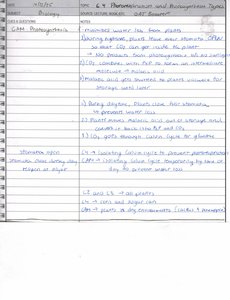 DATE
TOPIC 6.4 Photorespiration and Photosynthesis Types
SUBJECT Biology
SOURCE (LECTURE, BOOK, ETC)
CUES & QUESTIONS
NOTES
CAM Photosynthesis
minimizes water loss from plants
1) during nighttime, plants have their stomata open
so that CO2 can get inside the plants
→ No products from photosynthesis at all
2) CO2 combines with PEP to form an intermediate
molecule → malic acid
3) Malic acid gets shunted to plant's vacuole for
storage until later
1) During daytime, plants close their stomata
to prevent water loss
2) Plant moves malic acid out of storage and
convert it back into PEP and CO2
3) CO2 goes through Calvin cycle for glucose
stomatas open
stomatas close during day
C4 → isolating Calvin cycle to prevent photorespiration
CAM → isolating Calvin cycle temporarily by time of
day to prevent water loss
C3 → all plants
C4 → corn and sugar cane
CAM → plants in dry environments (cactus & pineapple)